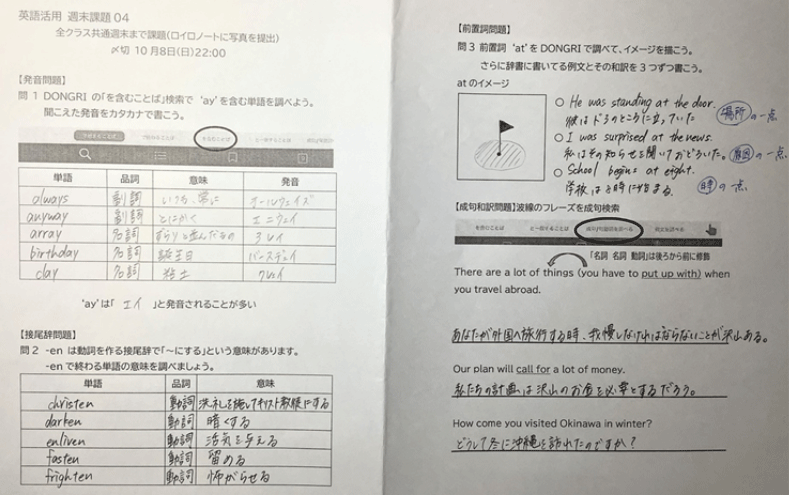 英語活用 週末課題 04
全クラス共通週末まで課題(ロイロノートに写真を提出)
〆切 10月8日(日)22:00
【発音問題】
問 1 DONGRI の「を含むことば」検索で 'ay'を含む単語を調べよう。
聞こえた発音をカタカナで書こう。
単語 品詞 意味 発音
always 副詞 いつも、常に オールウェイズ
anyway 副詞 とにかく エニウェイ
array 名詞 ずらりと並んだもの アレイ
birthday 名詞 誕生日 バースデェイ
clay 名詞 粘土 クレイ
'ay'は「 エイ 」と発音されることが多い
【接尾辞問題】
問 2 -en は動詞を作る接尾辞で「~にする」という意味があります。
-en で終わる単語の意味を調べましょう。
単語 品詞 意味
christen 動詞 洗礼を施してキリスト教徒にする
darken 動詞 暗くする
enliven 動詞 活気を与える
fasten 動詞 留める
frighten 動詞 怖がらせる
【前置詞問題】
問 3 前置詞 'at'を DONGRI で調べて、イメージを描こう。
さらに辞書に書いてる例文とその和訳を 3 つずつ書こう。
at のイメージ
○ He was standing at the door.
彼はドアのところに立っていた 場所の一点
○ I was surprised at the news.
私はその知らせを聞いておどろいた。 原因の一点
○ School begins at eight.
学校は8時に始まる。 時の一点
【成句和訳問題】波線のフレーズを成句検索
を含むことば と一致することば 成句の見出を調べる 例文を調べる
「名詞 名詞 動詞」は後ろから前に修飾
There are a lot of things (you have to put up with) when
you travel abroad.
あなたが外国へ旅行する時、我慢しなければならないことが沢山ある。
Our plan will call for a lot of money.
私たちの計画は沢山のお金を必要とするだろう。
How come you visited Okinawa in winter?
どうして冬に沖縄を訪れたのですか?